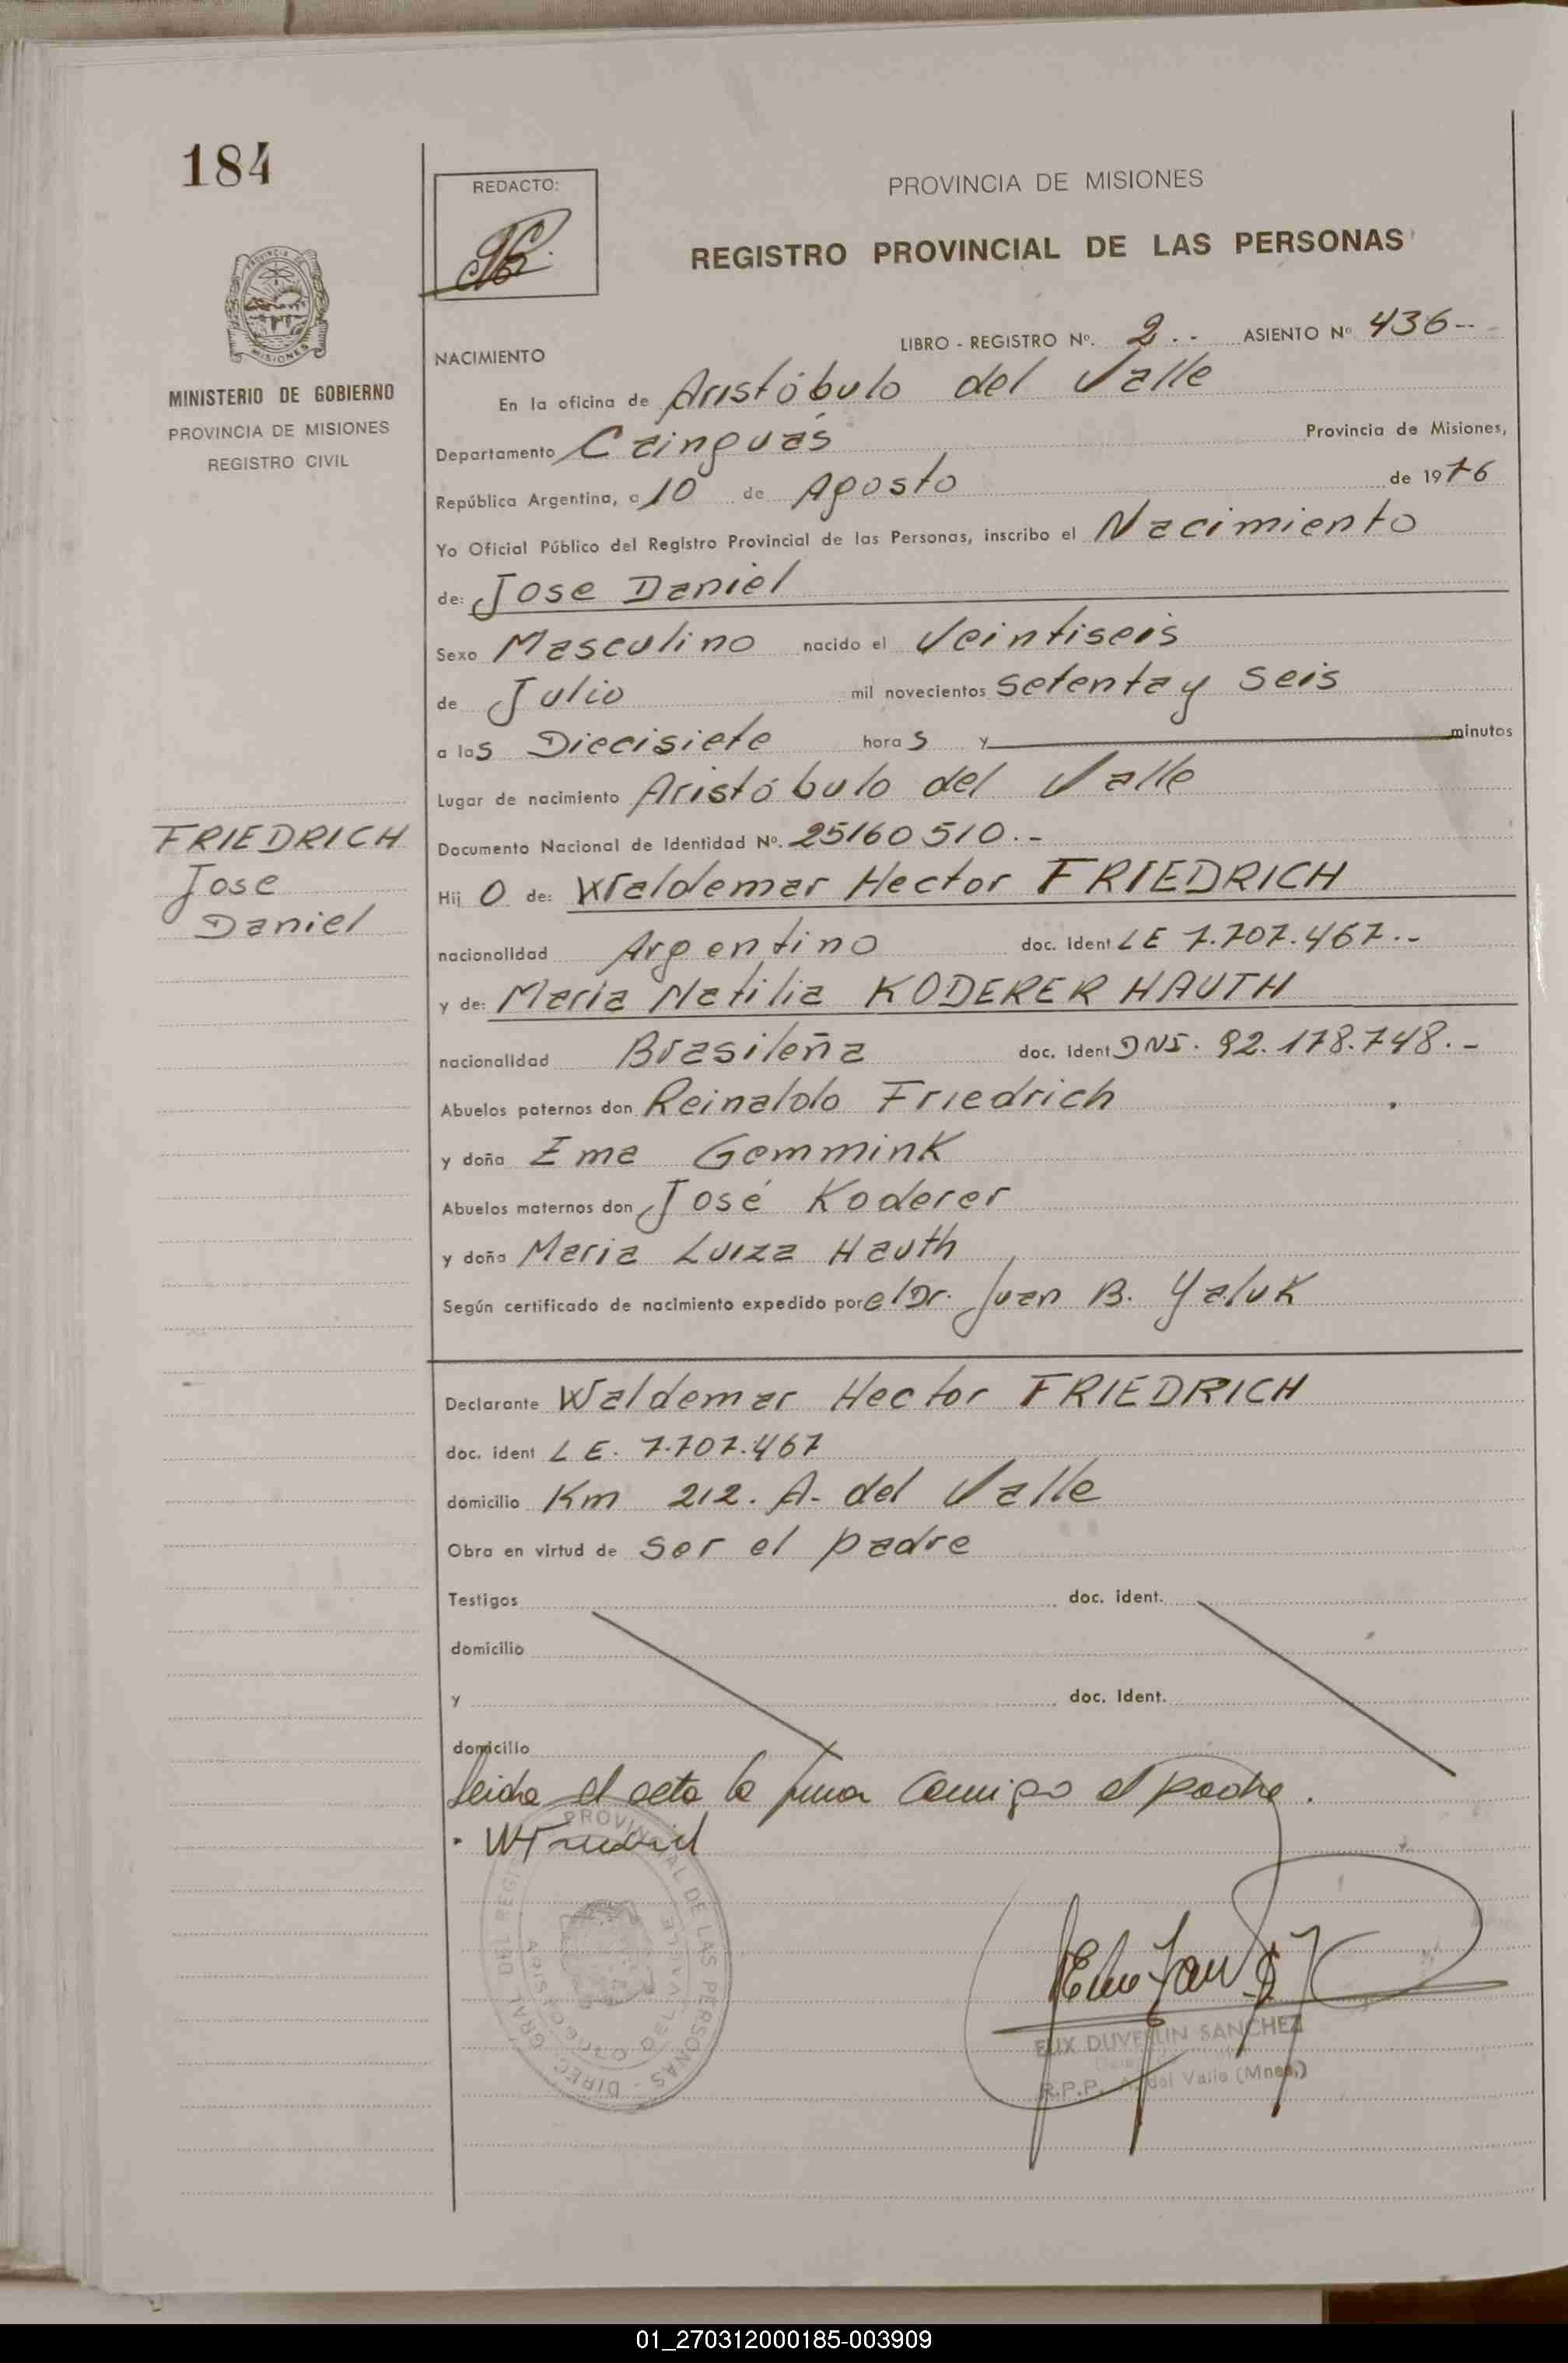 184
REDACTO:
PROVINCIA DE MISIONES
REGISTRO PROVINCIAL DE LAS PERSONAS
MINISTERIO DE GOBIERNO
PROVINCIA DE MISIONES
REGISTRO CIVIL
LIBRO - REGISTRO Nº. 2.- ASIENTO Nº 436--
NACIMIENTO
En la oficina de Aristóbulo del Valle
Departamento Cainguás Provincia de Misiones,
República Argentina, a 10 de Agosto de 1976
Yo Oficial Público del Registro Provincial de las Personas, inscribo el Nacimiento
de: Jose Daniel
Sexo Masculino nacido el Veintiseis
de Julio mil novecientos setenta y seis
a las Diecisiete horas y minutos
Lugar de nacimiento Aristóbulo del Valle
FRIEDRICH
Jose
Daniel
Documento Nacional de Identidad Nº. 25160510.-
Hijo de: Waldemar Hector FRIEDRICH
nacionalidad Argentino doc. Ident LE 7.707.467.-
y de: Maria Natilia KODERER HAUTH
nacionalidad Brasileña doc. Ident DNI. 92.178.748.-
Abuelos paternos don Reinaldo Friedrich
y doña Ema Gemmink
Abuelos maternos don José Koderer
y doña Maria Luiza Hauth
Según certificado de nacimiento expedido por el Dr. Juan B. Yaluk
Declarante Waldemar Hector FRIEDRICH
doc. ident LE. 7.707.467
domicilio Km 212. A. del Valle
Obra en virtud de ser el padre
Testigos doc. ident.
domicilio
y doc. Ident.
domicilio
Leida el acta la firma conmigo el padre.
DIREC. GRAL DEL REGI PROVINCIAL DE LAS PERSONAS
DEL VALLE
DUVERLIN SANCHEZ
R.P.P. A. del Valle (Mnes.)
01_270312000185-003909